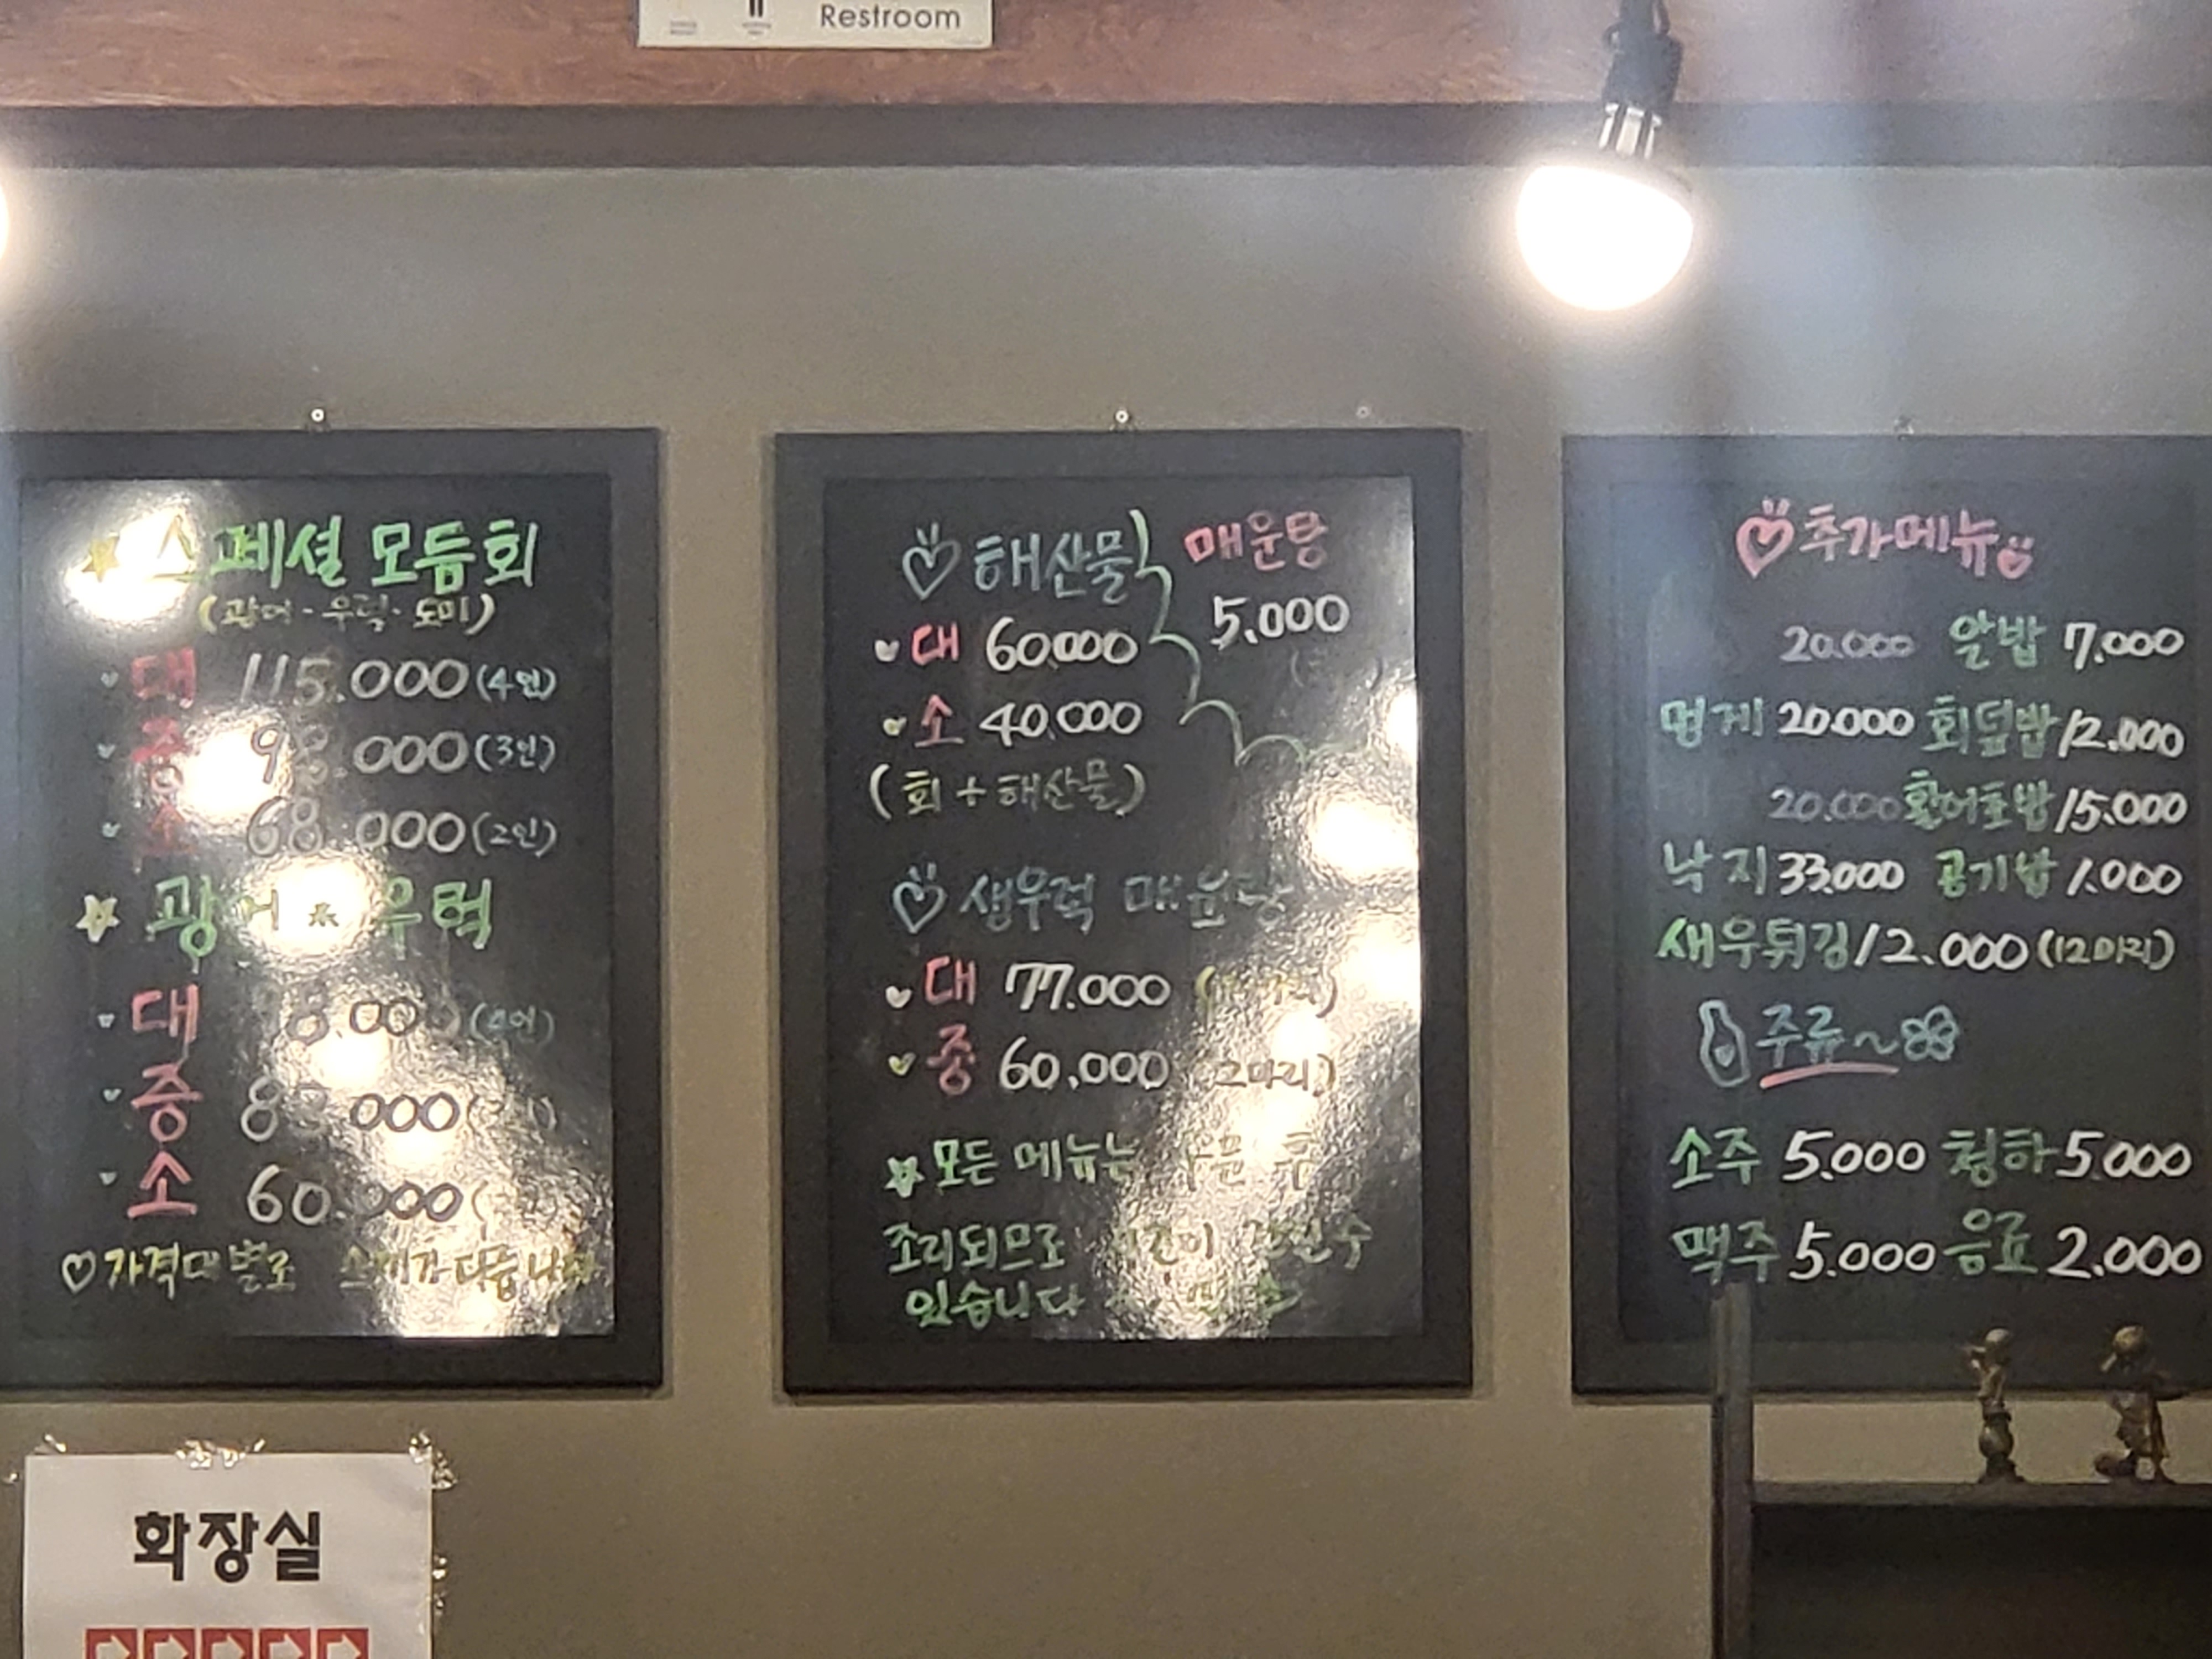 Restroom
스페셜 모듬회
(광어·우럭·도미)
대 115.000 (4인)
중 98.000 (3인)
소 68.000 (2인)
광어 우럭
대 8.000 (4인)
중 8 000
소 60.000
가격대별로 다릅니다
해산물 매운탕
5.000
대 60.000
소 40.000
(회+해산물)
생우럭 매운탕
대 77.000
중 60.000 2마리)
모든 메뉴는 주문 후
조리되므로
있습니다
추가메뉴
20.000 알밥 7.000
멍게 20.000 회덮밥 12.000
20.000 활어초밥 15.000
낙지 33.000 공기밥 1.000
새우튀김 12.000 (12마리)
주류~
소주 5.000 청하 5000
맥주 5.000 음료 2.000
화장실